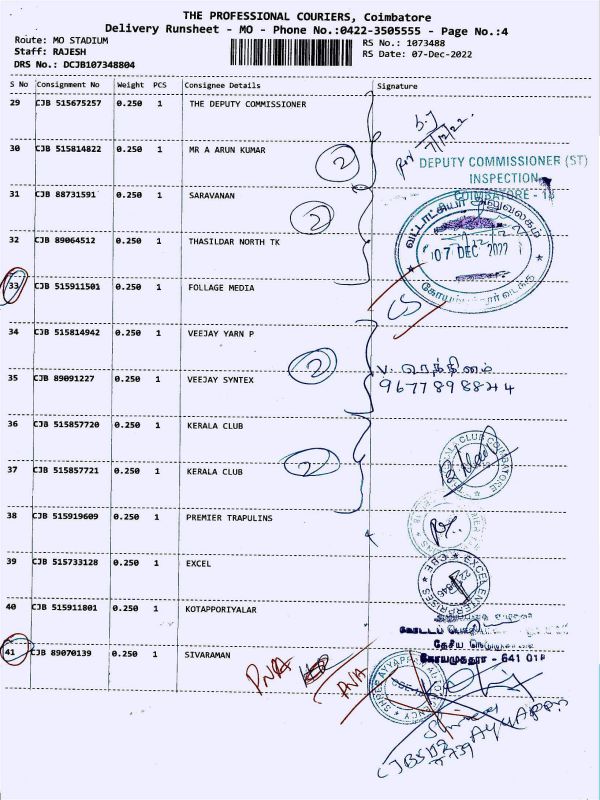 THE PROFESSIONAL COURIERS, Coimbatore
Delivery Runsheet - MO - Phone No.:0422-3505555 - Page No.:4
Route: MO STADIUM
Staff: RAJESH
DRS No.: DCJB107348804
RS No.: 1073488
RS Date: 07-Dec-2022
S No Consignment No Weight PCS Consignee Details Signature
29 CJB 515675257 0.250 1 THE DEPUTY COMMISSIONER
7/12/22
30 CJB 515814822 0.250 1 MR A ARUN KUMAR
2
DEPUTY COMMISSIONER (ST)
INSPECTION
COIMBATORE - 18
31 CJB 88731591 0.250 1 SARAVANAN
2
வட்டாட்சியர் அலுவலகம்
07 DEC 2022
32 CJB 89064512 0.250 1 THASILDAR NORTH TK
33 CJB 515911501 0.250 1 FOLLAGE MEDIA
34 CJB 515814942 0.250 1 VEEJAY YARN P
2
35 CJB 89091227 0.250 1 VEEJAY SYNTEX
9677898844
36 CJB 515857720 0.250 1 KERALA CLUB
37 CJB 515857721 0.250 1 KERALA CLUB
2
CLUB COIMBATORE
38 CJB 515919609 0.250 1 PREMIER TRAPULINS
39 CJB 515733128 0.250 1 EXCEL
40 CJB 515911801 0.250 1 KOTAPPORIYALAR
41 CJB 89070139 0.250 1 SIVARAMAN
கோயமுத்தூர் - 641 018